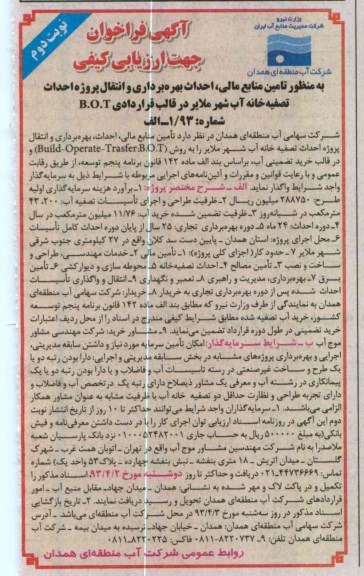 وزارت نیرو
شرکت مدیریت منابع آب ایران
شرکت آب منطقه‌ای همدان
نوبت دوم
آگهی فراخوان
جهت ارزیابی کیفی
به منظور تامین منابع مالی، احداث بهره‌برداری و انتقال پروژه احداث
تصفیه خانه آب شهر ملایر در قالب قراردادی B.O.T
شماره: ۱/۹۳-الف
شرکت سهامی آب منطقه‌ای همدان در نظر دارد تأمین منابع مالی، احداث، بهره‌برداری و انتقال
پروژه احداث تصفیه خانه آب شهر ملایر را به روش (Build-Operate-Trasfer:B.O.T) و
در قالب خرید تضمینی آب، براساس بند الف ماده ۱۴۲ قانون برنامه پنجم توسعه، از طریق رقابت
عمومی و با رعایت قوانین و مقررات و آئین‌نامه‌های اجرایی مربوطه با شرایط ذیل به سرمایه‌گذار
واجد شرایط واگذار نماید. الف - شرح مختصر پروژه: ۱- برآورد هزینه سرمایه‌گذاری اولیه
طرح: ۲۸۸۷۵۰ میلیون ریال ۲- ظرفیت طراحی و اجرای تأسیسات تصفیه آب: ۴۳،۲۰۰
مترمکعب در شبانه‌روز ۳- ظرفیت تضمین شده خرید آب: ۱۱/۷۶ میلیون مترمکعب در سال
۴- دوره احداث: ۲۴ ماه ۵- دوره بهره‌برداری تجاری: ۲۵ سال از پایان دوره احداث کامل تأسیسات
۶- محل اجرای پروژه: استان همدان - پایین دست سد کلان واقع در ۲۷ کیلومتری جنوب شرقی
شهر ملایر ۷- حدود کار (اجزای کلی پروژه): ۱- تأمین مالی ۲- خدمات مهندسی، طراحی و
ساخت و نصب ۳- تأمین مصالح ۴- احداث تصفیه‌خانه ۵- محوطه سازی و دیوارکشی ۶- تأمین
برق ۷- بهره‌برداری، مدیریت و راهبری ۸- تعمیر و نگهداری ۹- انتقال و واگذاری تأسیسات
احداث شده پس از دوره بهره‌برداری تجاری به خریدار ۸- خریدار: شرکت سهامی آب منطقه‌ای
همدان به نمایندگی از طرف وزارت نیرو که مطابق بند الف ماده ۱۴۲ قانون برنامه پنجم توسعه
کشور، خرید آب تصفیه شده مطابق شرایط کیفی مندرج در اسناد را از محل ردیف اعتبارات
خرید تضمینی در طول دوره قرارداد تضمین می‌نماید. ۹- مشاور خرید: شرکت مهندسی مشاور
موج آب ب - شرایط سرمایه‌گذار: امکان تأمین سرمایه مورد نیاز و داشتن سابقه مدیریتی،
اجرایی و بهره‌برداری پروژه‌های مشابه در بخش سابقه مدیریتی و اجرایی: دارا بودن رتبه دو یا
یک طرح و ساخت غیرصنعتی در رسته تاسیسات آب و فاضلاب و یا دارا بودن رتبه دو یا یک
پیمانکاری در رشته آب و معرفی یک مشاور ذیصلاح دارای رتبه یک در تخصص آب و فاضلاب و
دارای تجربه طراحی و نظارت حداقل دو تصفیه خانه آب با ظرفیت مشابه به عنوان مشاور همکار
الزامی می‌باشد. ۱- سرمایه‌گذاران واجد شرایط می‌توانند حداکثر تا ۱۰ روز از تاریخ انتشار نوبت
دوم این آگهی در روزنامه اسناد ارزیابی توان اجرای کار را با در دست داشتن معرفی‌نامه و فیش
بانکی (به مبلغ ۵۰۰۰۰۰ ریال به حساب جاری ۰۱۰۰۰۵۲۴۸۲۰۰۱ نزد بانک پارسیان شعبه
ملاصدرا به نام شرکت مهندسین مشاور موج آب واقع در تهران - اتوبان همت غرب - شهرک
گلستان - میدان آتریش - ۱۸ متری بنفشه - نبش بنفشه چهارده - پلاک ۵۳ واحد یک) شماره
تماس: ۴۴۷۳۶۶۶۹-۰۲۱ دریافت و حداکثر تا روز دوشنبه مورخ ۹۳/۴/۲ اسناد مذکور را
تکمیل و در پاکت لاک و مهر شده به نشانی: همدان - میدان جهاد - مقابل منبع آب - امور
قراردادهای شرکت آب منطقه‌ای همدان تحویل و رسید دریافت نمایند. ۲- تاریخ بازگشایی
اسناد مذکور در روز سه‌شنبه مورخ ۹۳/۴/۳ در محل شرکت آب منطقه‌ای می‌باشد - آدرس
شرکت سهامی آب منطقه‌ای همدان: همدان - خیابان جهاد - نرسیده به میدان بیمه - شرکت آب
منطقه‌ای همدان تلفن: ۹-۸۲۲۰۷۳۷-۰۸۱۱ فاکس: ۸۲۲۰۲۲۵-۰۸۱۱
روابط عمومی شرکت آب منطقه‌ای همدان